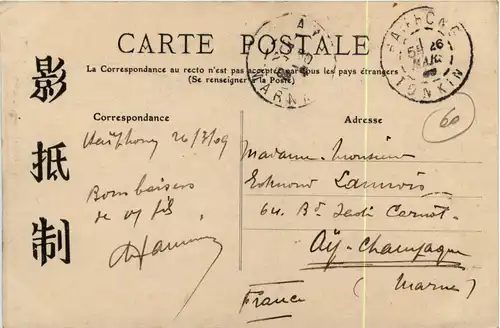 CARTE POSTALE
La Correspondance au recto n'est pas acceptée par tous les pays étrangers
(Se renseigner à la Poste)
Correspondance
Adresse
影
抵
制
HAIPHONG
26
MARS
09
TONKIN
AY
MARNE
60
Haïphong 26/3/09
Bons baisers
de vos fils
Madame Monsieur
Edmond Lannois
64. Bd. Sadi Carnot
Aÿ-Champagne
(Marne)
France